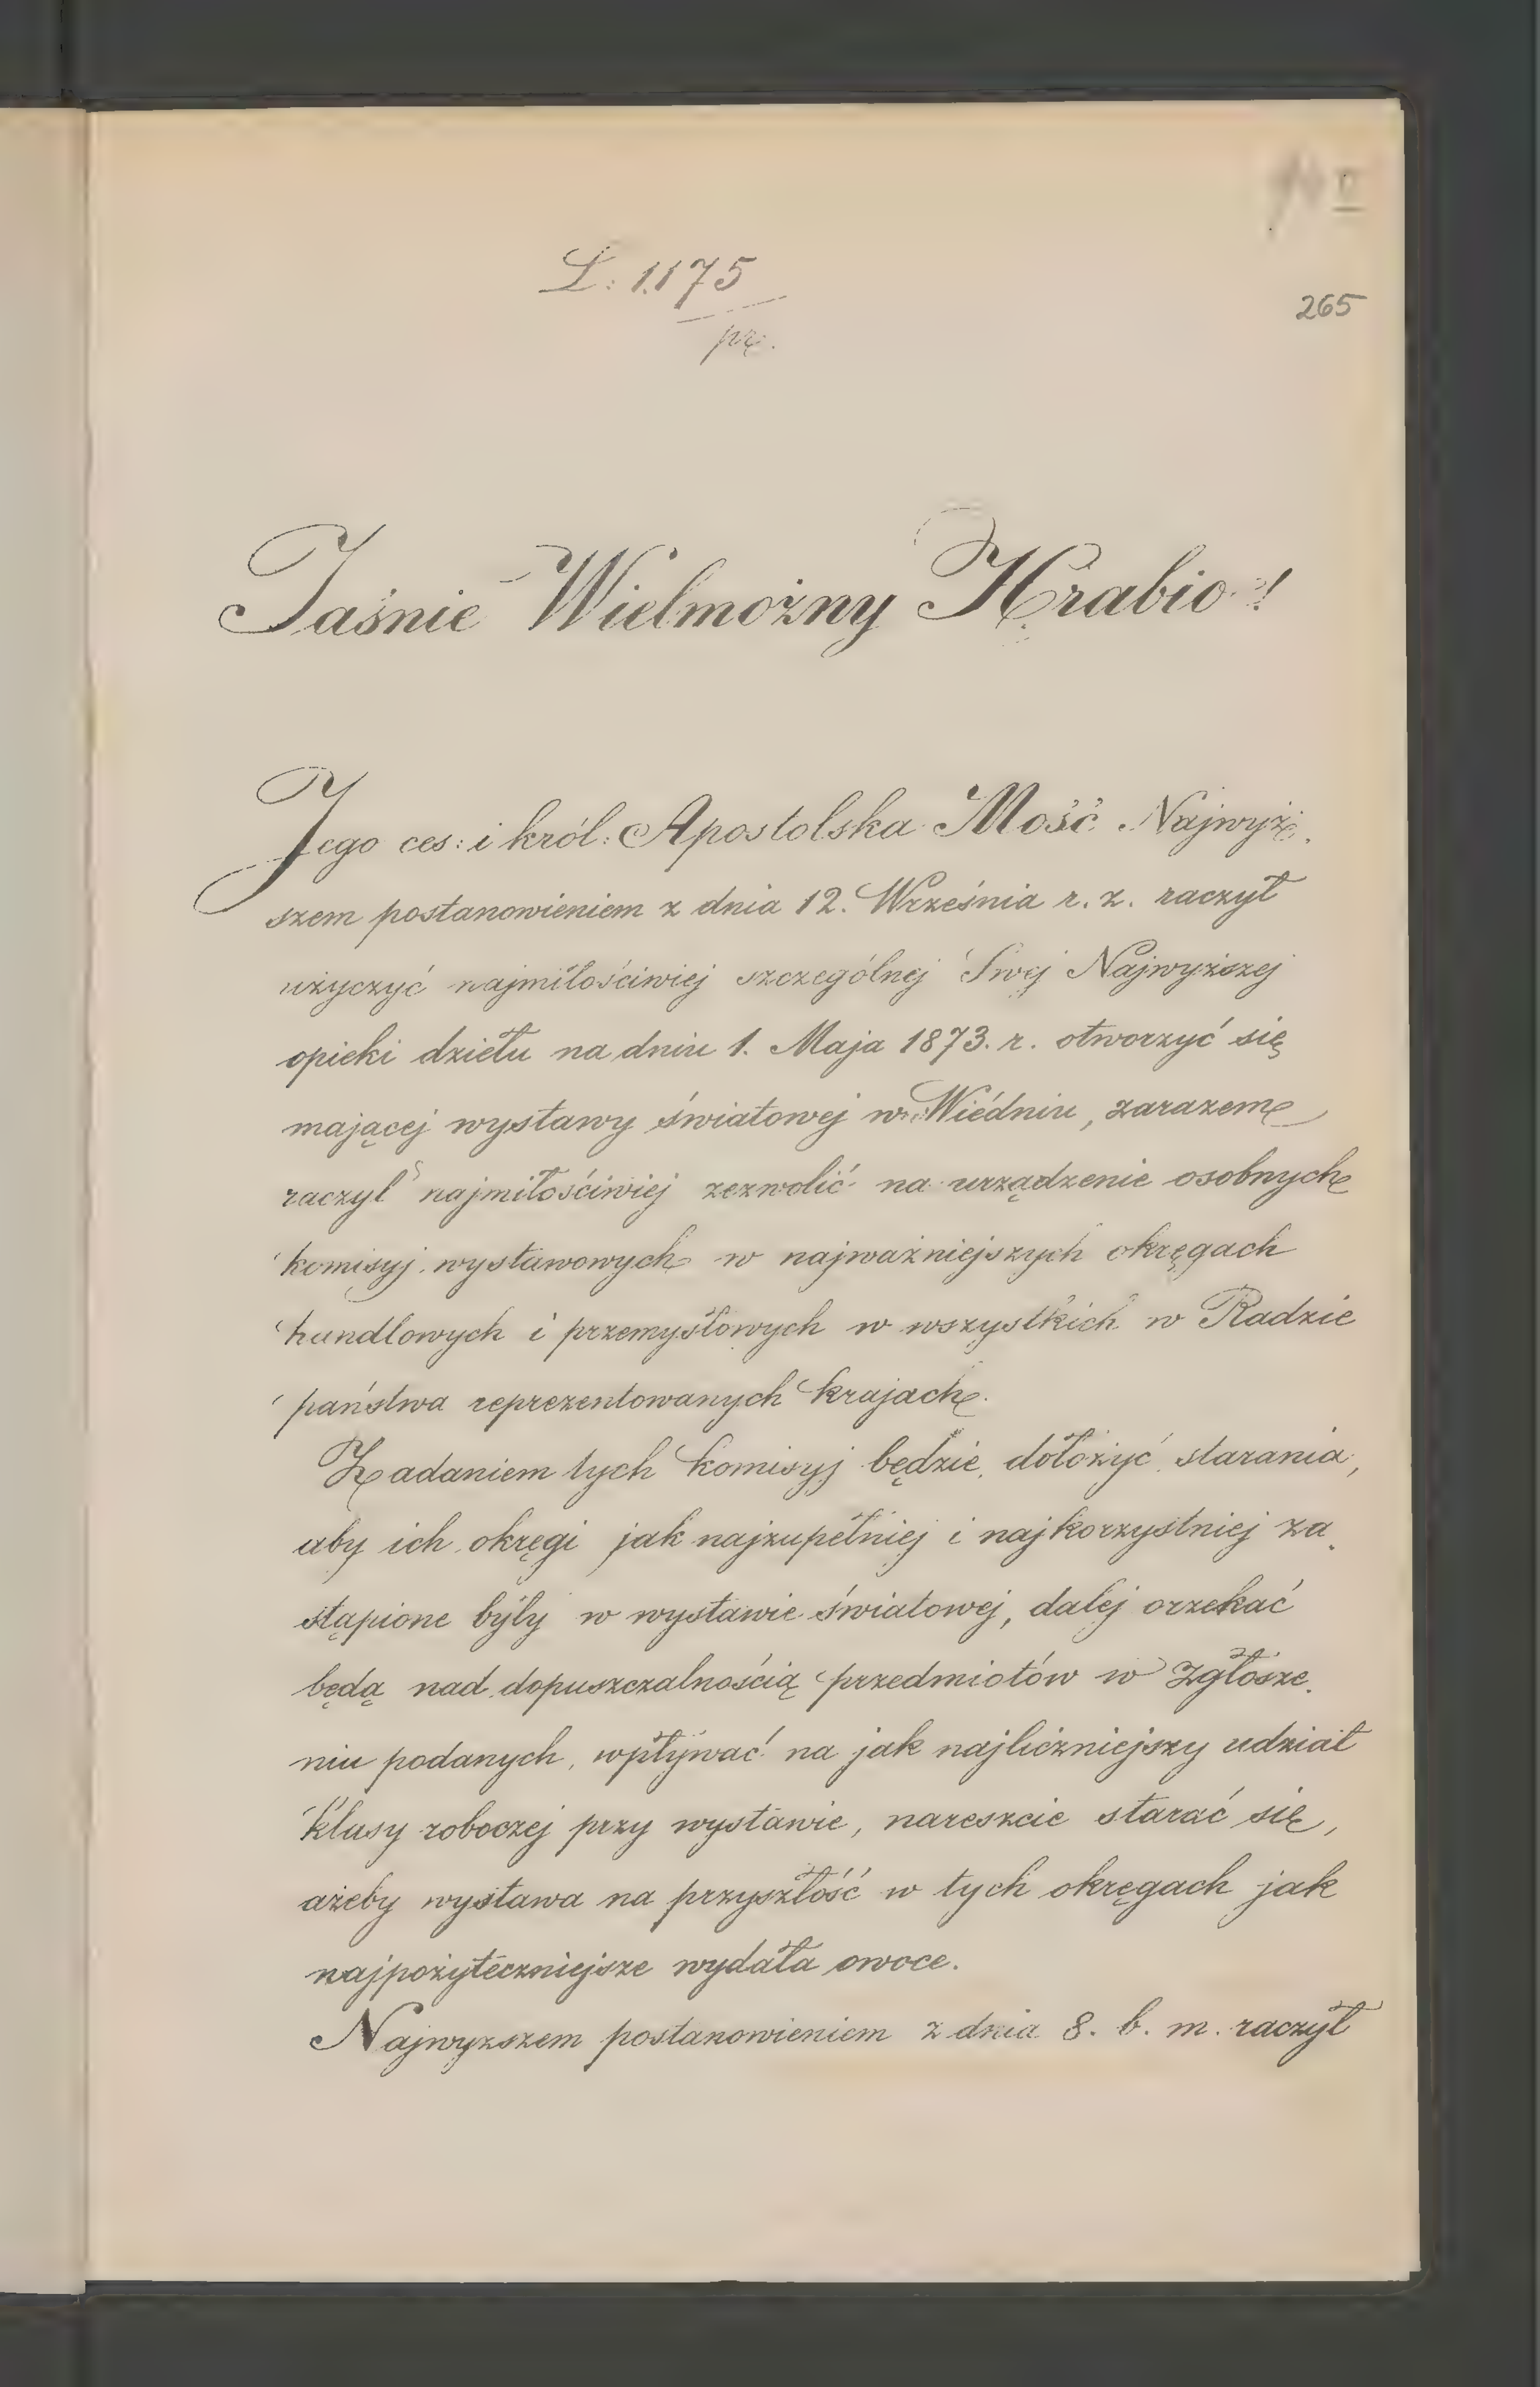 L: 1175
265
pr.
Jaśnie Wielmożny Hrabio!
Jego ces: i król: Apostolska Mość Najwyż-
szem postanowieniem z dnia 12. Września r. z. raczył
użyczyć najmiłościwiej szczególnej Swej Najwyższej
opieki dziełu na dniu 1. Maja 1873. r. otworzyć się
mającej wystawy światowej w Wiédniu, zarazem
raczył najmiłościwiej zezwolić na urządzenie osobnych
komisyj wystawowych w najważniejszych okręgach
handlowych i przemysłowych w wszystkich w Radzie
państwa reprezentowanych krajach.
Zadaniem tych komisyj będzie dołożyć starania,
aby ich okręgi jak najzupełniej i najkorzystniej za-
stąpione były w wystawie światowej, dalej orzekać
będą nad dopuszczalnością przedmiotów w zgłosze-
niu podanych, wpływać na jak najliczniejszy udział
klasy roboczej przy wystawie, nareszcie starać się,
ażeby wystawa na przyszłość w tych okręgach jak
najpożyteczniejsze wydała owoce.
Najwyższem postanowieniem z dnia 8. b. m. raczył